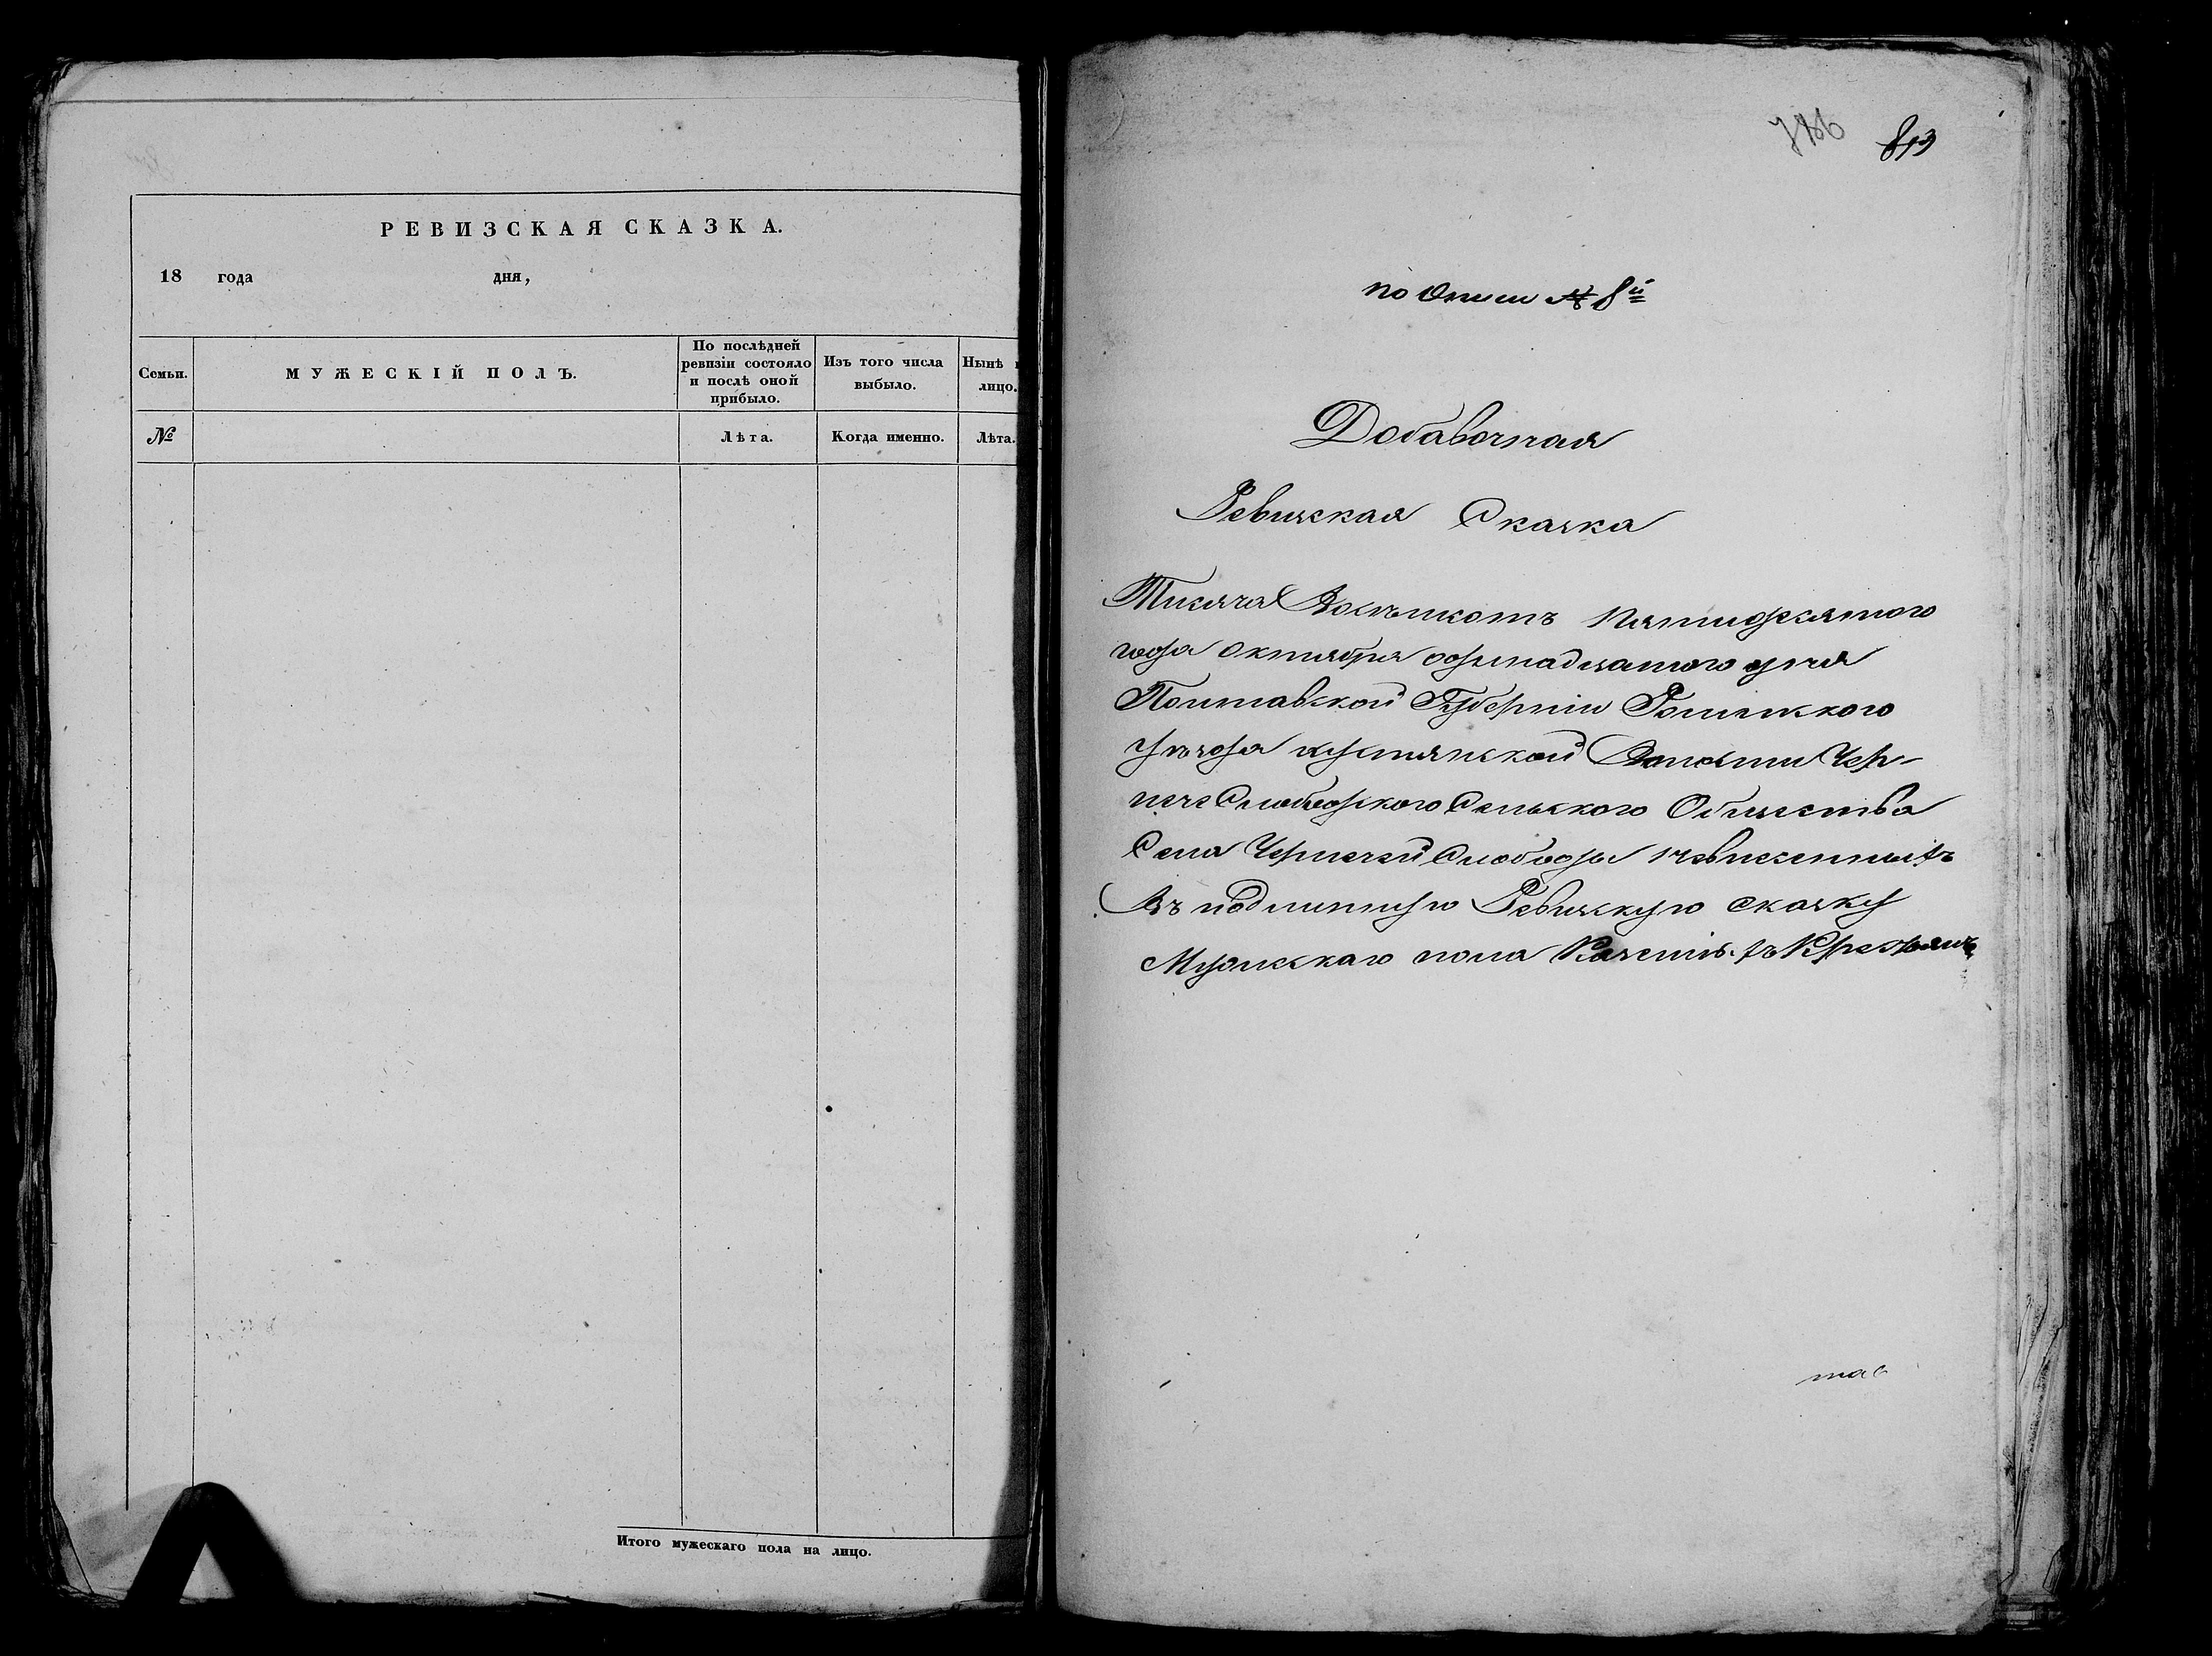 РЕВИЗСКАЯ СКАЗКА.
18 года дня,
Семьи.
МУЖЕСКІЙ ПОЛЪ.
По послѣдней
ревизіи состояло
и послѣ оной
прибыло.
Изъ того числа
выбыло.
Нынѣ
лицо.
№
Лѣта.
Когда именно.
Лѣта.
Итого мужескаго пола на лицо.
813
по Описи № 8й
Добавочная
Ревизская Сказка
Тисяча Восемъсотъ Пятидесятого
года Октября одинадцатого дня
Полтавской Губерніи Роменского
уѣзда Волости Чер-
нече Слободского Сельского Общества
Села Чернечей Слободы невнесенныхъ
Въ подлинную Ревизскую сказку
Мужескаго пола Казенныхъ Крестьянъ